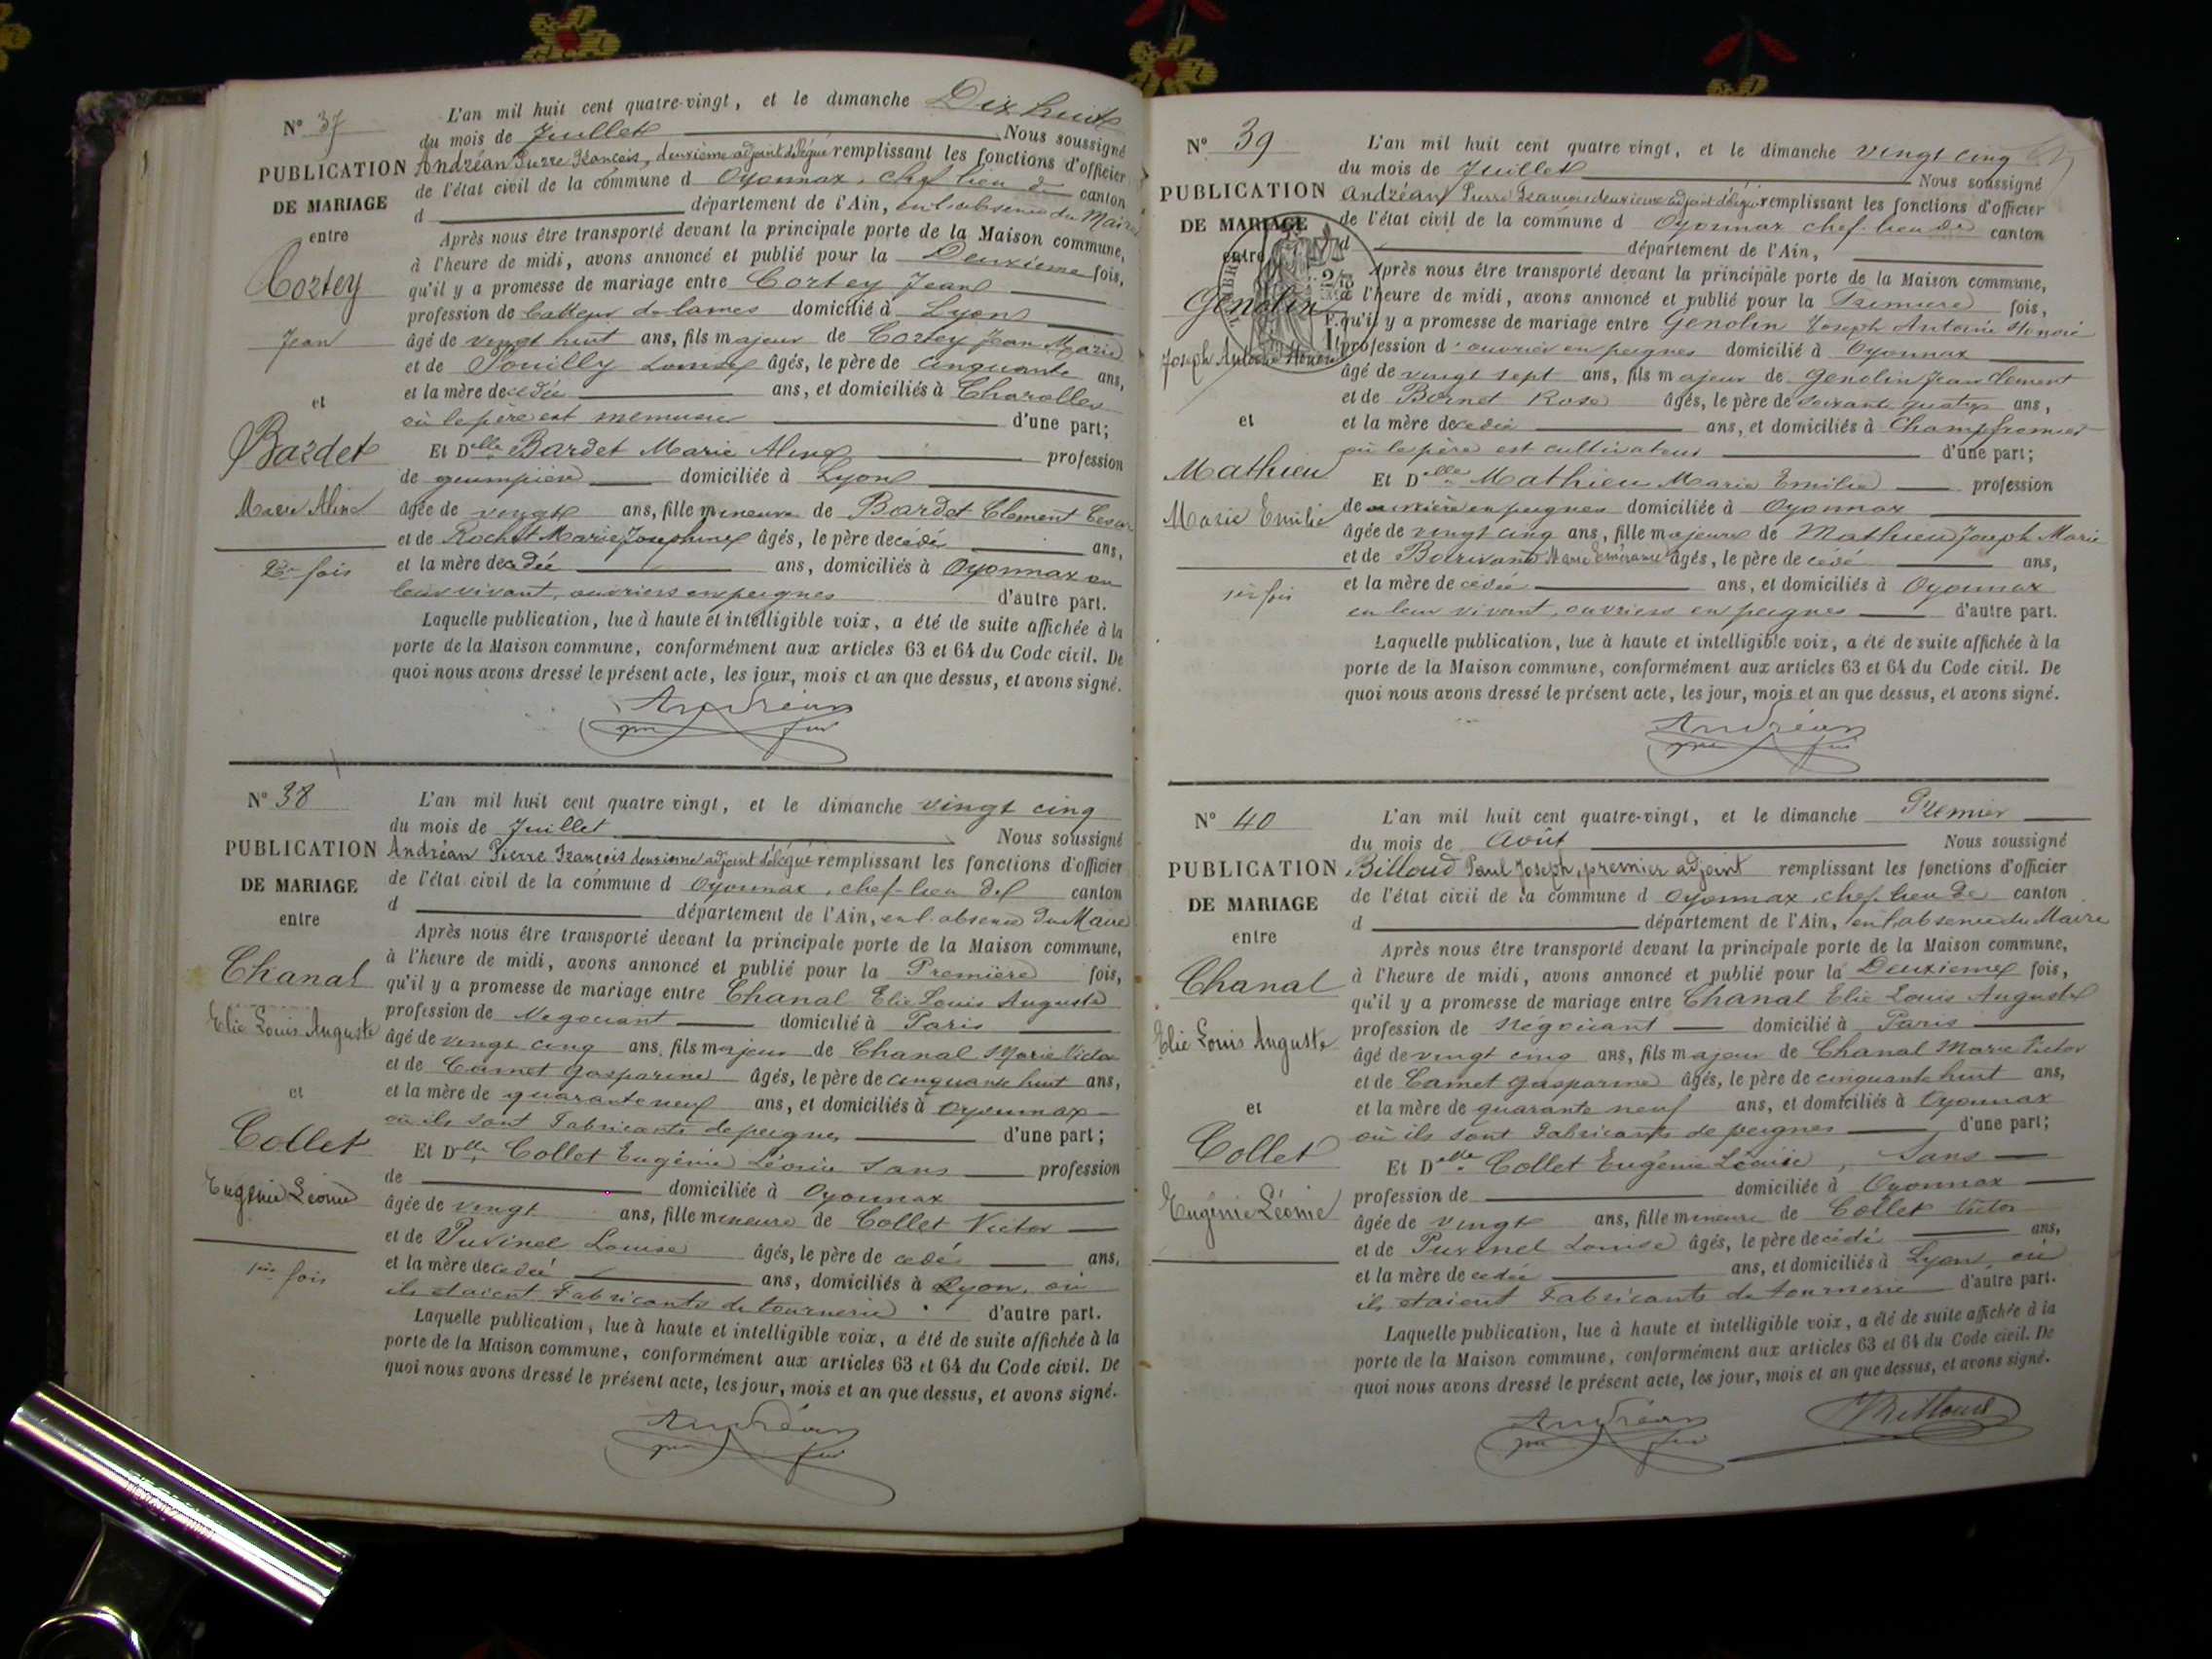 N° 37
PUBLICATION
DE MARIAGE
entre
Cortey
Jean
et
Bardet
Marie Aline
2e fois
L'an mil huit cent quatre-vingt, et le dimanche Dix huit
du mois de Juillet Nous soussigné
Andréan Pierre François, deuxième adjoint délégué remplissant les fonctions d'officier
de l'état civil de la commune d Oyonnax, chef lieu de canton
d département de l'Ain, en l'absence du Maire
Après nous être transporté devant la principale porte de la Maison commune,
à l'heure de midi, avons annoncé et publié pour la Deuxième fois,
qu'il y a promesse de mariage entre Cortey Jean
profession de batteur de lames domicilié à Lyon
âgé de vingt huit ans, fils majeur de Cortey Jean Marie
et de Pouilly Louise âgés, le père de cinquante ans,
et la mère decedée ans, et domiciliés à Charolles
où le père est d'une part;
Et Delle Bardet Marie Aline profession
de guimpière domiciliée à Lyon
âgée de vingt ans, fille mineure de Bardet Clement Cesar
et de Rochet Marie Josephine âgés, le père decédé ans,
et la mère decedée ans, domiciliés à Oyonnax en
leur vivant, ouvriers en peignes d'autre part.
Laquelle publication, lue à haute et intelligible voix, a été de suite affichée à la
porte de la Maison commune, conformément aux articles 63 et 64 du Code civil. De
quoi nous avons dressé le présent acte, les jour, mois et an que dessus, et avons signé.
Andréan
N° 38
PUBLICATION
DE MARIAGE
entre
Chanal
Elie Louis Auguste
et
Collet
Eugénie Léonie
1ère fois
L'an mil huit cent quatre vingt, et le dimanche vingt cinq
du mois de Juillet Nous soussigné
Andréan Pierre François deuxième adjoint délégué remplissant les fonctions d'officier
de l'état civil de la commune d Oyonnax, chef-lieu de canton
d département de l'Ain, en l'absence du Maire
Après nous être transporté devant la principale porte de la Maison commune,
à l'heure de midi, avons annoncé et publié pour la Première fois,
qu'il y a promesse de mariage entre Chanal Elie Louis Auguste
profession de Négociant domicilié à Paris
âgé de vingt cinq ans, fils majeur de Chanal Marie Victor
et de Carnet Gasparine âgés, le père de cinquante huit ans,
et la mère de quarante neuf ans, et domiciliés à Oyonnax
où ils sont Fabricants de peignes d'une part;
Et Delle Collet Eugénie Léonie Sans profession
de domiciliée à Oyonnax
âgée de vingt ans, fille mineure de Collet Victor
et de Puvinel Louise âgés, le père de cedé ans,
et la mère decedée ans, domiciliés à Lyon, où
ils étaient Fabricants de tournerie d'autre part.
Laquelle publication, lue à haute et intelligible voix, a été de suite affichée à la
porte de la Maison commune, conformément aux articles 63 et 64 du Code civil. De
quoi nous avons dressé le présent acte, les jour, mois et an que dessus, et avons signé.
Andréan
N° 39
PUBLICATION
DE MARIAGE
entre
Genolin
Joseph Antoine Honoré
et
Mathieu
Marie Emilie
1ère fois
L'an mil huit cent quatre vingt, et le dimanche vingt cinq
du mois de Juillet Nous soussigné
Andréan Pierre François deuxième adjoint délégué remplissant les fonctions d'officier
de l'état civil de la commune d Oyonnax chef-lieu de canton
d département de l'Ain,
Après nous être transporté devant la principale porte de la Maison commune,
à l'heure de midi, avons annoncé et publié pour la Première fois,
qu'il y a promesse de mariage entre Genolin Joseph Antoine Honoré
profession d'ouvrier en peignes domicilié à Oyonnax
âgé de vingt sept ans, fils majeur de Genolin Jean Clement
et de Bornet Rose âgés, le père de soixante quatre ans,
et la mère decedée ans, et domiciliés à Champfromier
où le père est cultivateur d'une part;
Et Delle Mathieu Marie Emilie profession
de ouvrière en peignes domiciliée à Oyonnax
âgée de vingt cinq ans, fille majeure de Mathieu Joseph Marie
et de Marie âgés, le père de cédé ans,
et la mère de cedée ans, et domiciliés à Oyonnax
en leur vivant, ouvriers en peignes d'autre part.
Laquelle publication, lue à haute et intelligible voix, a été de suite affichée à la
porte de la Maison commune, conformément aux articles 63 et 64 du Code civil. De
quoi nous avons dressé le présent acte, les jour, mois et an que dessus, et avons signé.
Andréan
N° 40
PUBLICATION
DE MARIAGE
entre
Chanal
Elie Louis Auguste
et
Collet
Eugénie Léonie
L'an mil huit cent quatre-vingt, et le dimanche Premier
du mois de Août Nous soussigné
Billoud Paul Joseph, premier adjoint remplissant les fonctions d'officier
de l'état civil de la commune d Oyonnax, chef lieu de canton
d département de l'Ain, en l'absence du Maire
Après nous être transporté devant la principale porte de la Maison commune,
à l'heure de midi, avons annoncé et publié pour la Deuxième fois,
qu'il y a promesse de mariage entre Chanal Elie Louis Auguste
profession de Négociant domicilié à Paris
âgé de vingt cinq ans, fils majeur de Chanal Marie Victor
et de Carnet Gasparine âgés, le père de cinquante huit ans,
et la mère de quarante neuf ans, et domiciliés à Oyonnax
où ils sont Fabricants de peignes d'une part;
Et Delle Collet Eugénie Léonie, Sans
profession de domiciliée à Oyonnax
âgée de vingt ans, fille mineure de Collet Victor
et de Puvinel Louise âgés, le père decédé ans,
et la mère de cedée ans, et domiciliés à Lyon, où
ils étaient Fabricants de tournerie d'autre part.
Laquelle publication, lue à haute et intelligible voix, a été de suite affichée à la
porte de la Maison commune, conformément aux articles 63 et 64 du Code civil. De
quoi nous avons dressé le présent acte, les jour, mois et an que dessus, et avons signé.
Andréan
Billoud